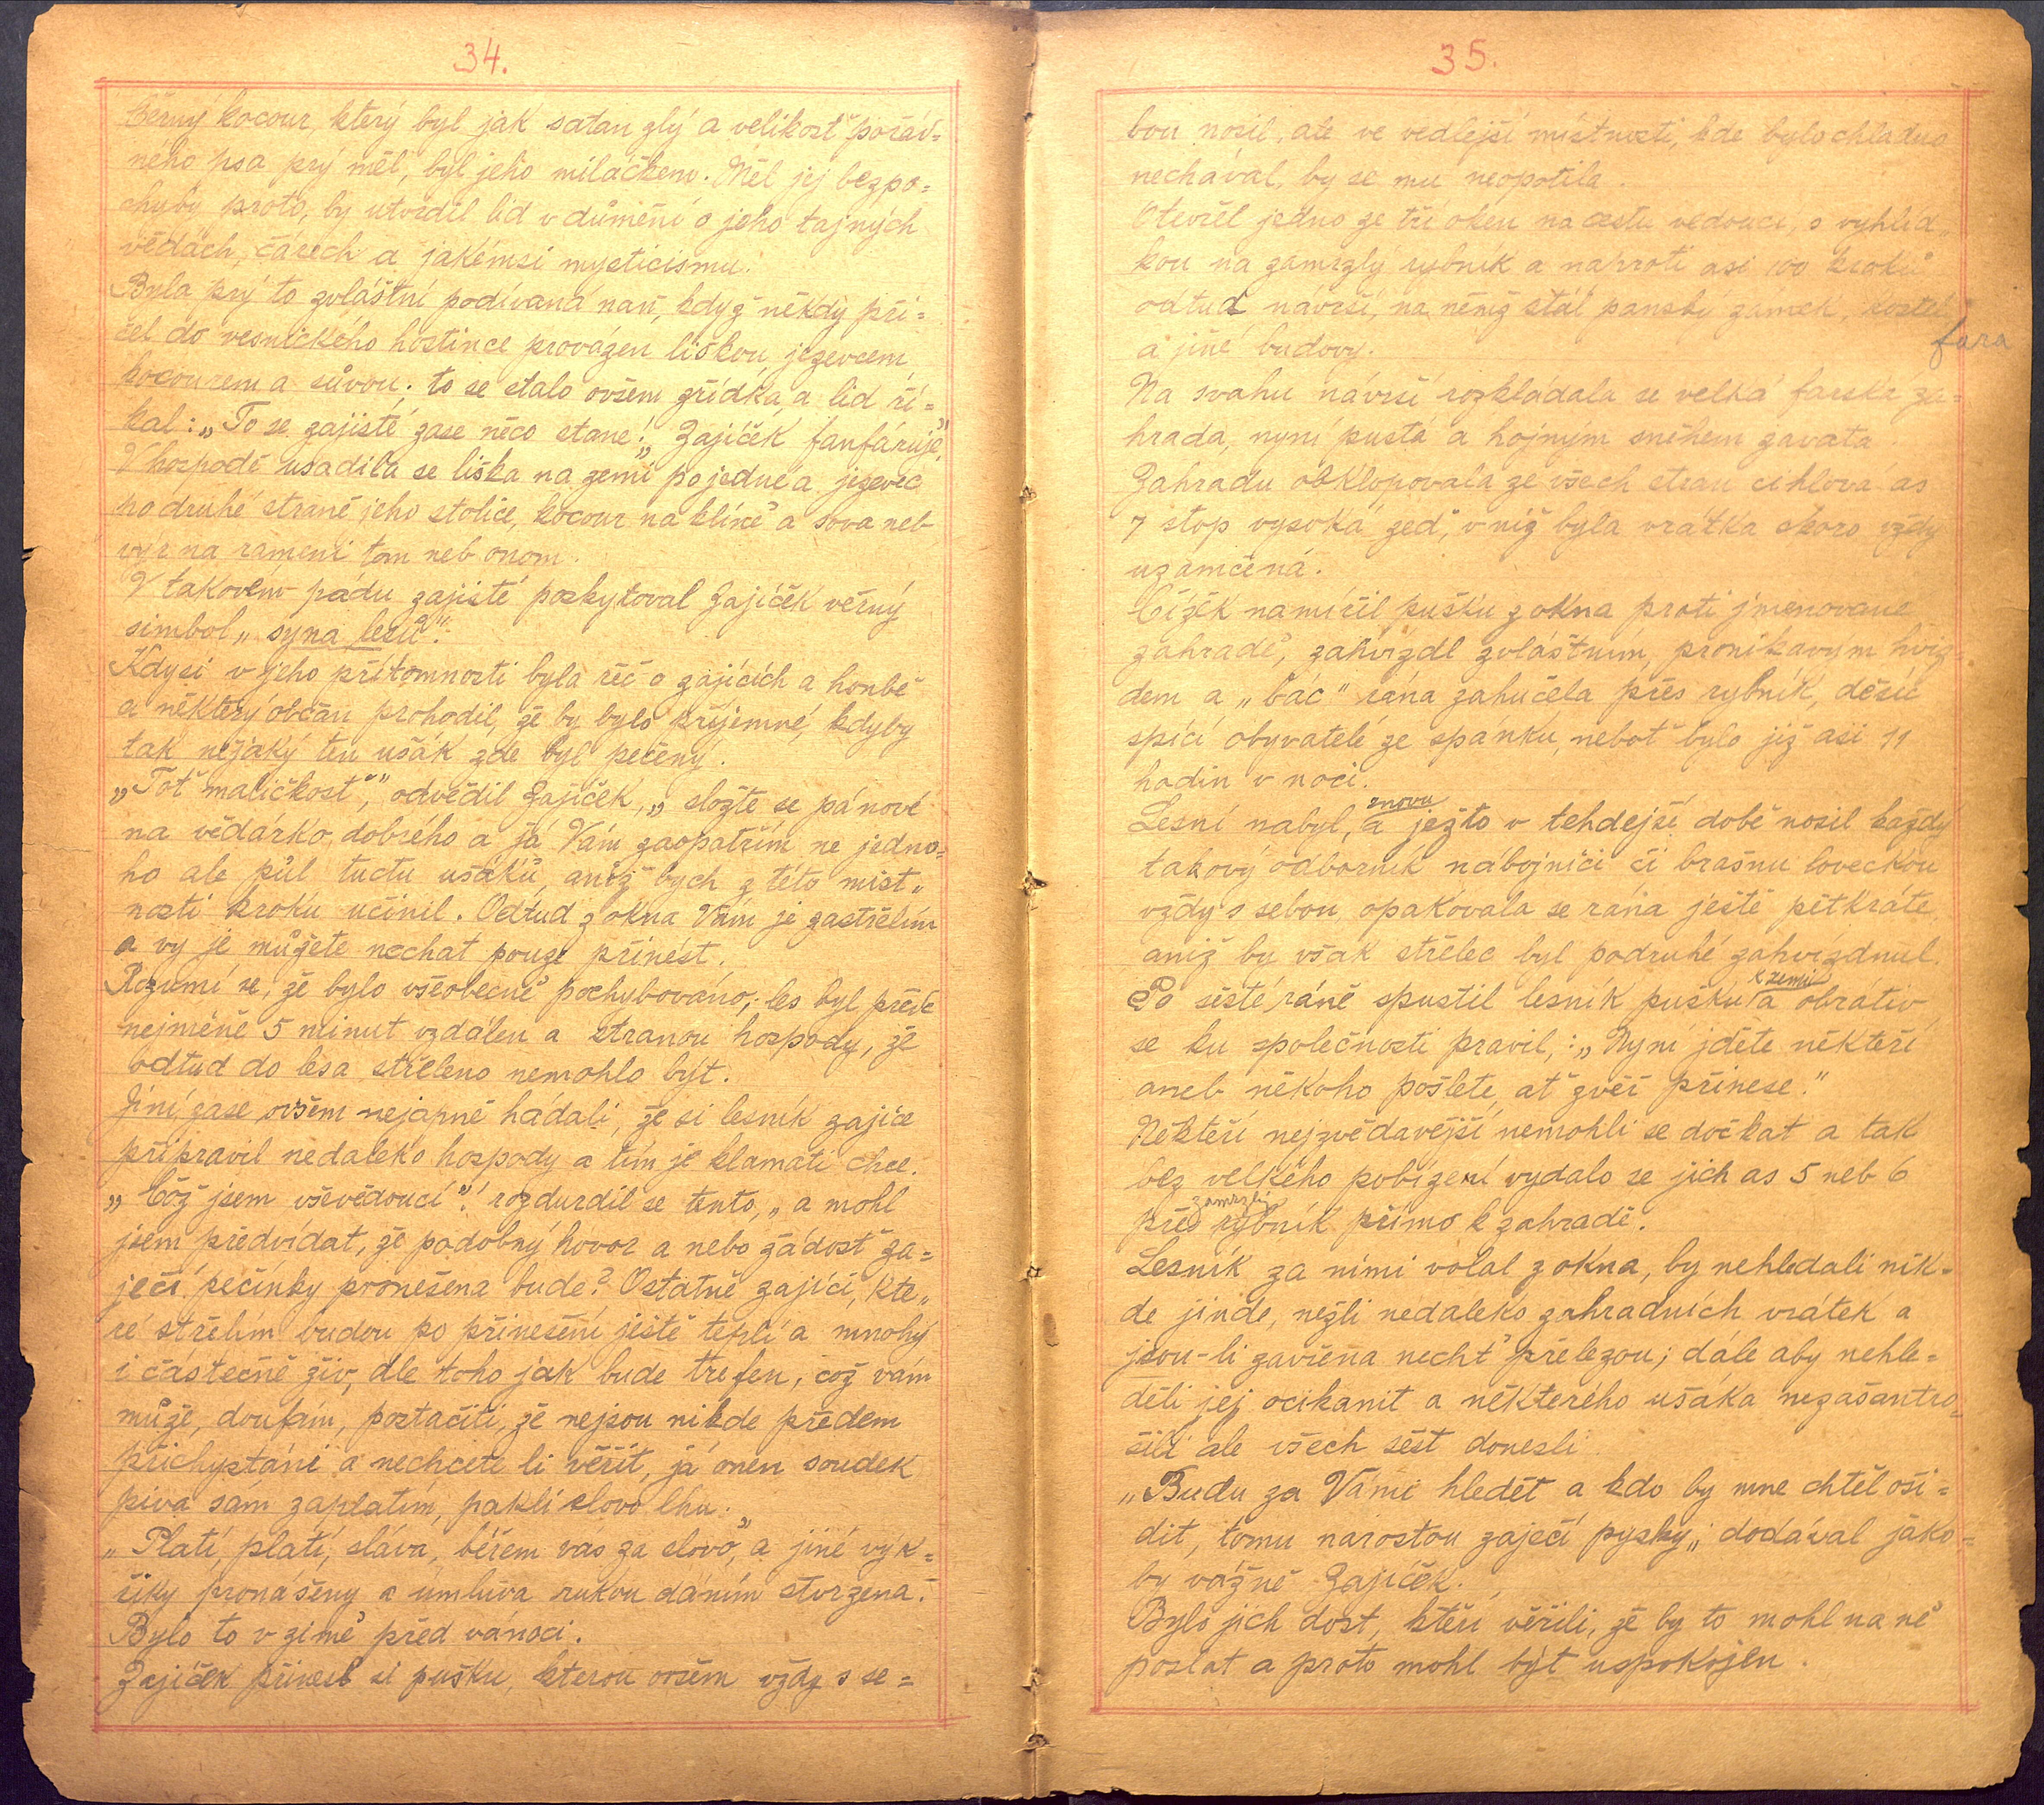 34.
Černý kocour, který byl jak satan zlý a velikosť pořád=
ného psa prý měl, byl jeho miláčkem. Měl jej bezpo=
chyby proto, by utvrdil lid v důmění o jeho tajných
vědách, čárech a jakémsi mysticismu.
Byla prý to zvláštní podívaná naň, když někdy při=
šel do vesnického hostince provázen liškou, jezevcem,
kocourem a sůvou; to se stalo ovšem zřídka, a lid ří=
kal: „To se zajisté zase něco stane!„ Zajíček fanfáruje."
V hospodě usadila se liška na zemi po jedné a jezevec
po druhé straně jeho stolice, kocour na klíně a sova neb
výr na rameni tom neb onom.
V takovém pádu zajisté poskytoval Zajíček věrný
simbol „syna lesů".
Kdysi v jeho přítomnosti byla řeč o zajících a honbě
a některý občan prohodil, že by bylo příjemné, kdyby
tak nějaký ten ušák zde byl pečený.
„Toť maličkosť," odvědil Zajíček, „složte se pánové
na vědárko dobrého a já Vám zaopatřím ne jedno=
ho ale půl tuctu ušáků, aniž bych z této míst„
nosti kroku učinil. Odtud z okna Vám je zastřelím
a vy je můžete nechat pouze přinést.
Rozumí se, že bylo všeobecně pochybováno; les byl přece
nejméně 5 minut vzdálen a stranou hospody, že
odtud do lesa stříleno nemohlo být.
Jiní zase ovšem nejapně hádali, že si lesník zajíce
připravil nedaleko hospody a tím je klamati chce.
„Což jsem vševědoucí"! rozdurdil se tento, „a mohl
jsem předvídat, že podobný hovor a nebo žádosť za=
ječí pečínky pronešena bude? Ostatně zajíci, kte„
ré střelím budou po přinesení ještě teplí a mnohý
i částečně živ, dle toho jak bude trefen, což vám
může, doufám, postačiti, že nejsou nikde předem
přichystáni a nechcete li věřit, já onen soudek
piva sám zaplatím, pakli slovo lhu.
„Platí, platí, sláva, béřem vás za slovo", a jiné výk=
řiky pronášeny a úmluva rukou dáním stvrzena.
Bylo to v zimě před vánoci.
Zajíček přinesl si pušku, kterou ovšem vždy s se=
35.
bou nosil, ale ve vedlejší místnosti, kde bylo chladno
nechával, by se mu neopotila.
Otevřel jedno ze tří oken na cestu vedoucí, s vyhlíd„
kou na zamrzlý rybník a naproti asi 100 kroků
odtud návrší, na němž stál panský zámek, kostel,
fara
a jiné budovy.
Na svahu návrší rozkládala se velká farská za=
hrada, nyní pustá a hojným sněhem zavátá
Zahradu obklopovala ze všech stran cihlová as
7 stop vysoká zeď, v níž byla vrátka skoro vždy
uzamčená.
Čížek namířil pušku z okna proti jmenované
zahradě, zahvízdl zvláštním, pronikavým hvíz
dem a „bác" rána zahučela přes rybník, děsíc
spící obyvatele ze spánku, neboť bylo již asi 11
hodin v noci.
znovu
Lesní nabyl, a ježto v tehdejší době nosil každý
takový odborník nábojnici či brašnu loveckou
vždy s sebou, opakovala se rána ještě pětkráte,
aniž by však střelec byl podruhé zahvízdnul.
k zemi
Po šesté ráně spustil lesník pušku a obrátiv
se ku společnosti pravil,: „Nyní jděte někteří
aneb někoho pošlete, ať zvěř přinese."
Někteří nejzvědavější nemohli se dočkat a tak
bez velkého pobízení vydalo se jich as 5 neb 6
zamrzlý
přes rybník přímo k zahradě.
Lesník za nimi volal z okna, by nehledali nik=
de jinde, nežli nedaleko zahradních vrátek a
jsou-li zavřena nechť přelezou; dále aby nehle=
děli jej ocikanit a některého ušáka nezašantro=
čili ale všech šest donesli.
„Budu za Vámi hledět a kdo by mne chtěl oši=
dit, tomu narostou zaječí pysky„ dodával jako=
by vážně Zajíček.
Bylo jich dost, kteří věřili, že by to mohl na ně
poslat a proto mohl být uspokojen.